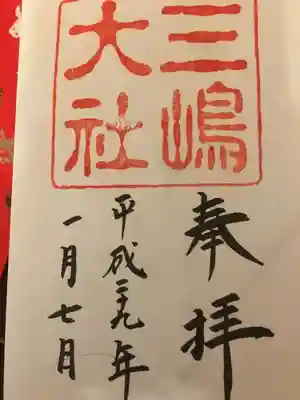 三嶋
大社
奉拝
平成二九年
一月七日